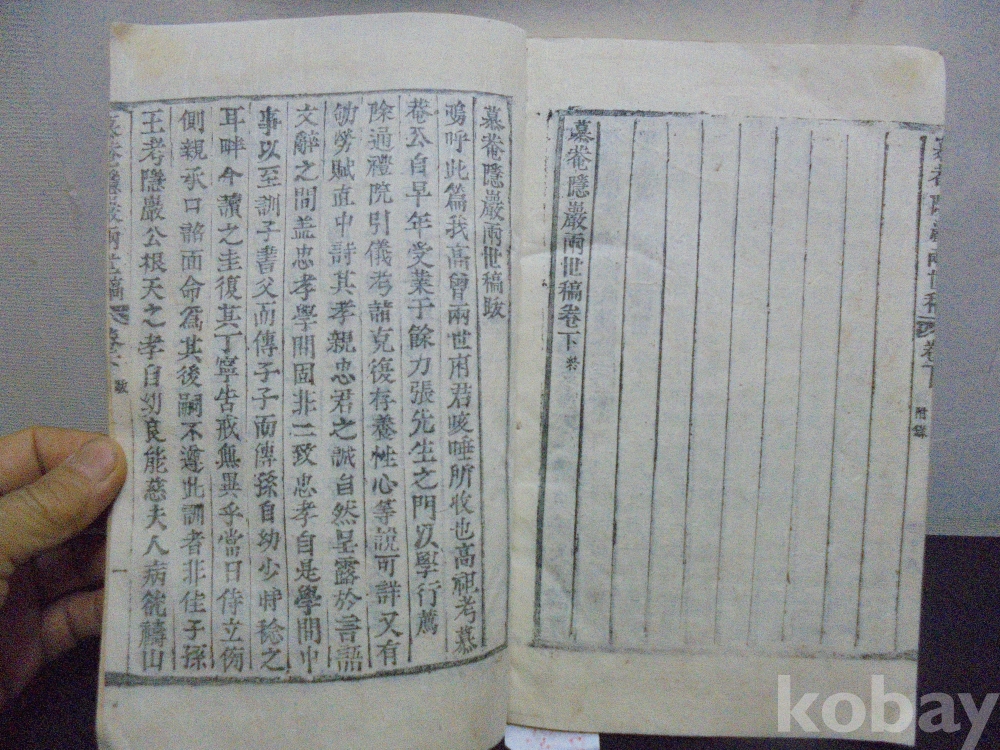 慕菴隱巖兩世稿卷下
附錄
慕菴隱巖兩世稿卷下終
慕菴隱巖兩世稿跋
嗚呼此篇我高曾兩世府君咳唾所收也高祖考慕
菴公自早年受業于餘力張先生之門以學行薦
除通禮院引儀考諸克復存養性心等說可詳又有
劬勞賦直中詩其孝親忠君之誠自然呈露於言語
文辭之間盖忠孝學問固非二致忠孝自是學問中
事以至訓子書父而傳子子而傳孫自幼少時稔之
耳畔今讀之圭復其丁寧告戒無異乎當日侍立傍
側親承口詺面命爲其後嗣不遵此訓者非佳子孫
王考隱巖公根天之孝自幼良能慈夫人病能禱山
慕菴隱巖兩世稿
跋
一
kobay